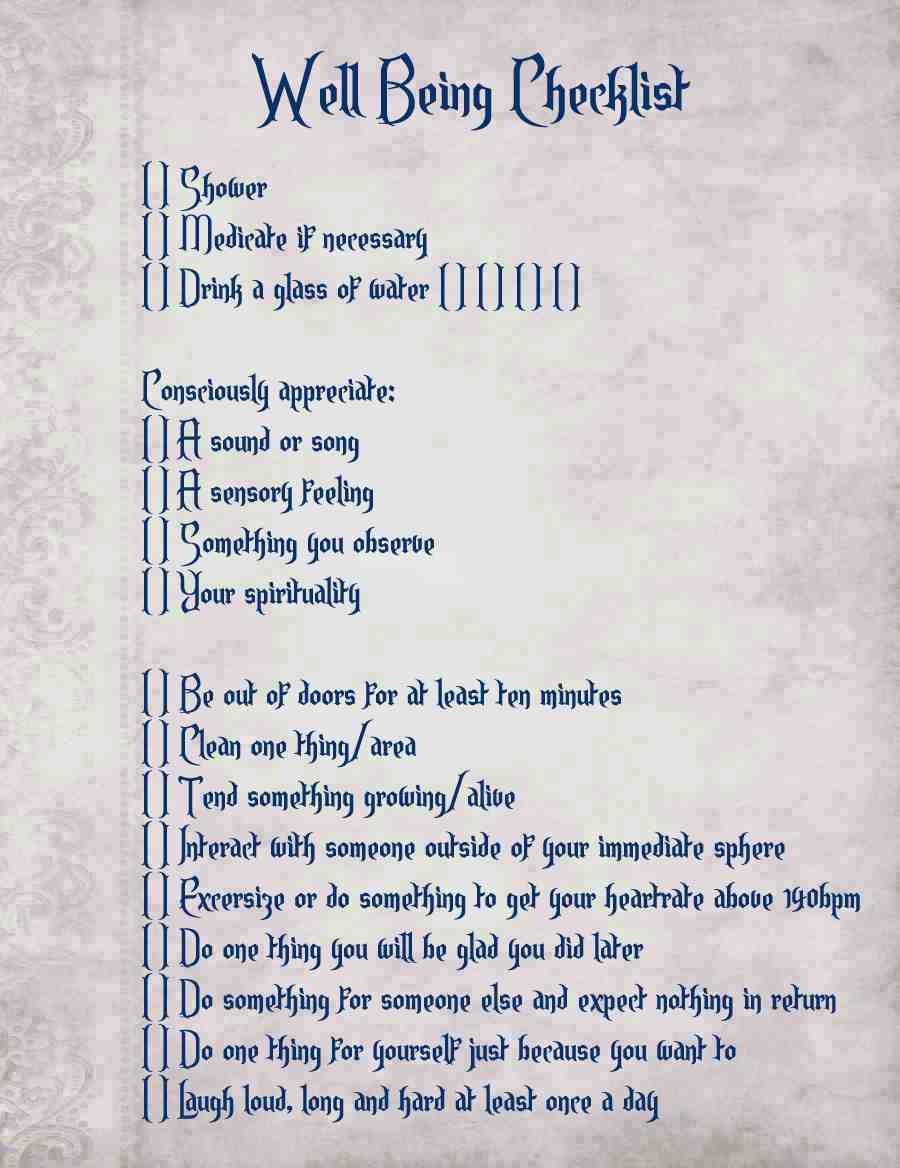 Well Being Checklist
[] Shower
[] Medicate if necessary
[] Drink a glass of water [] [] [] []
Consciously appreciate:
[] A sound or song
[] A sensory feeling
[] Something you observe
[] Your spirituality
[] Be out of doors for at least ten minutes
[] Clean one thing/area
[] Tend something growing/alive
[] Interact with someone outside of your immediate sphere
[] Excersize or do something to get your heartrate above 140bpm
[] Do one thing you will be glad you did later
[] Do something for someone else and expect nothing in return
[] Do one thing for yourself just because you want to
[] Laugh loud, long and hard at least once a day